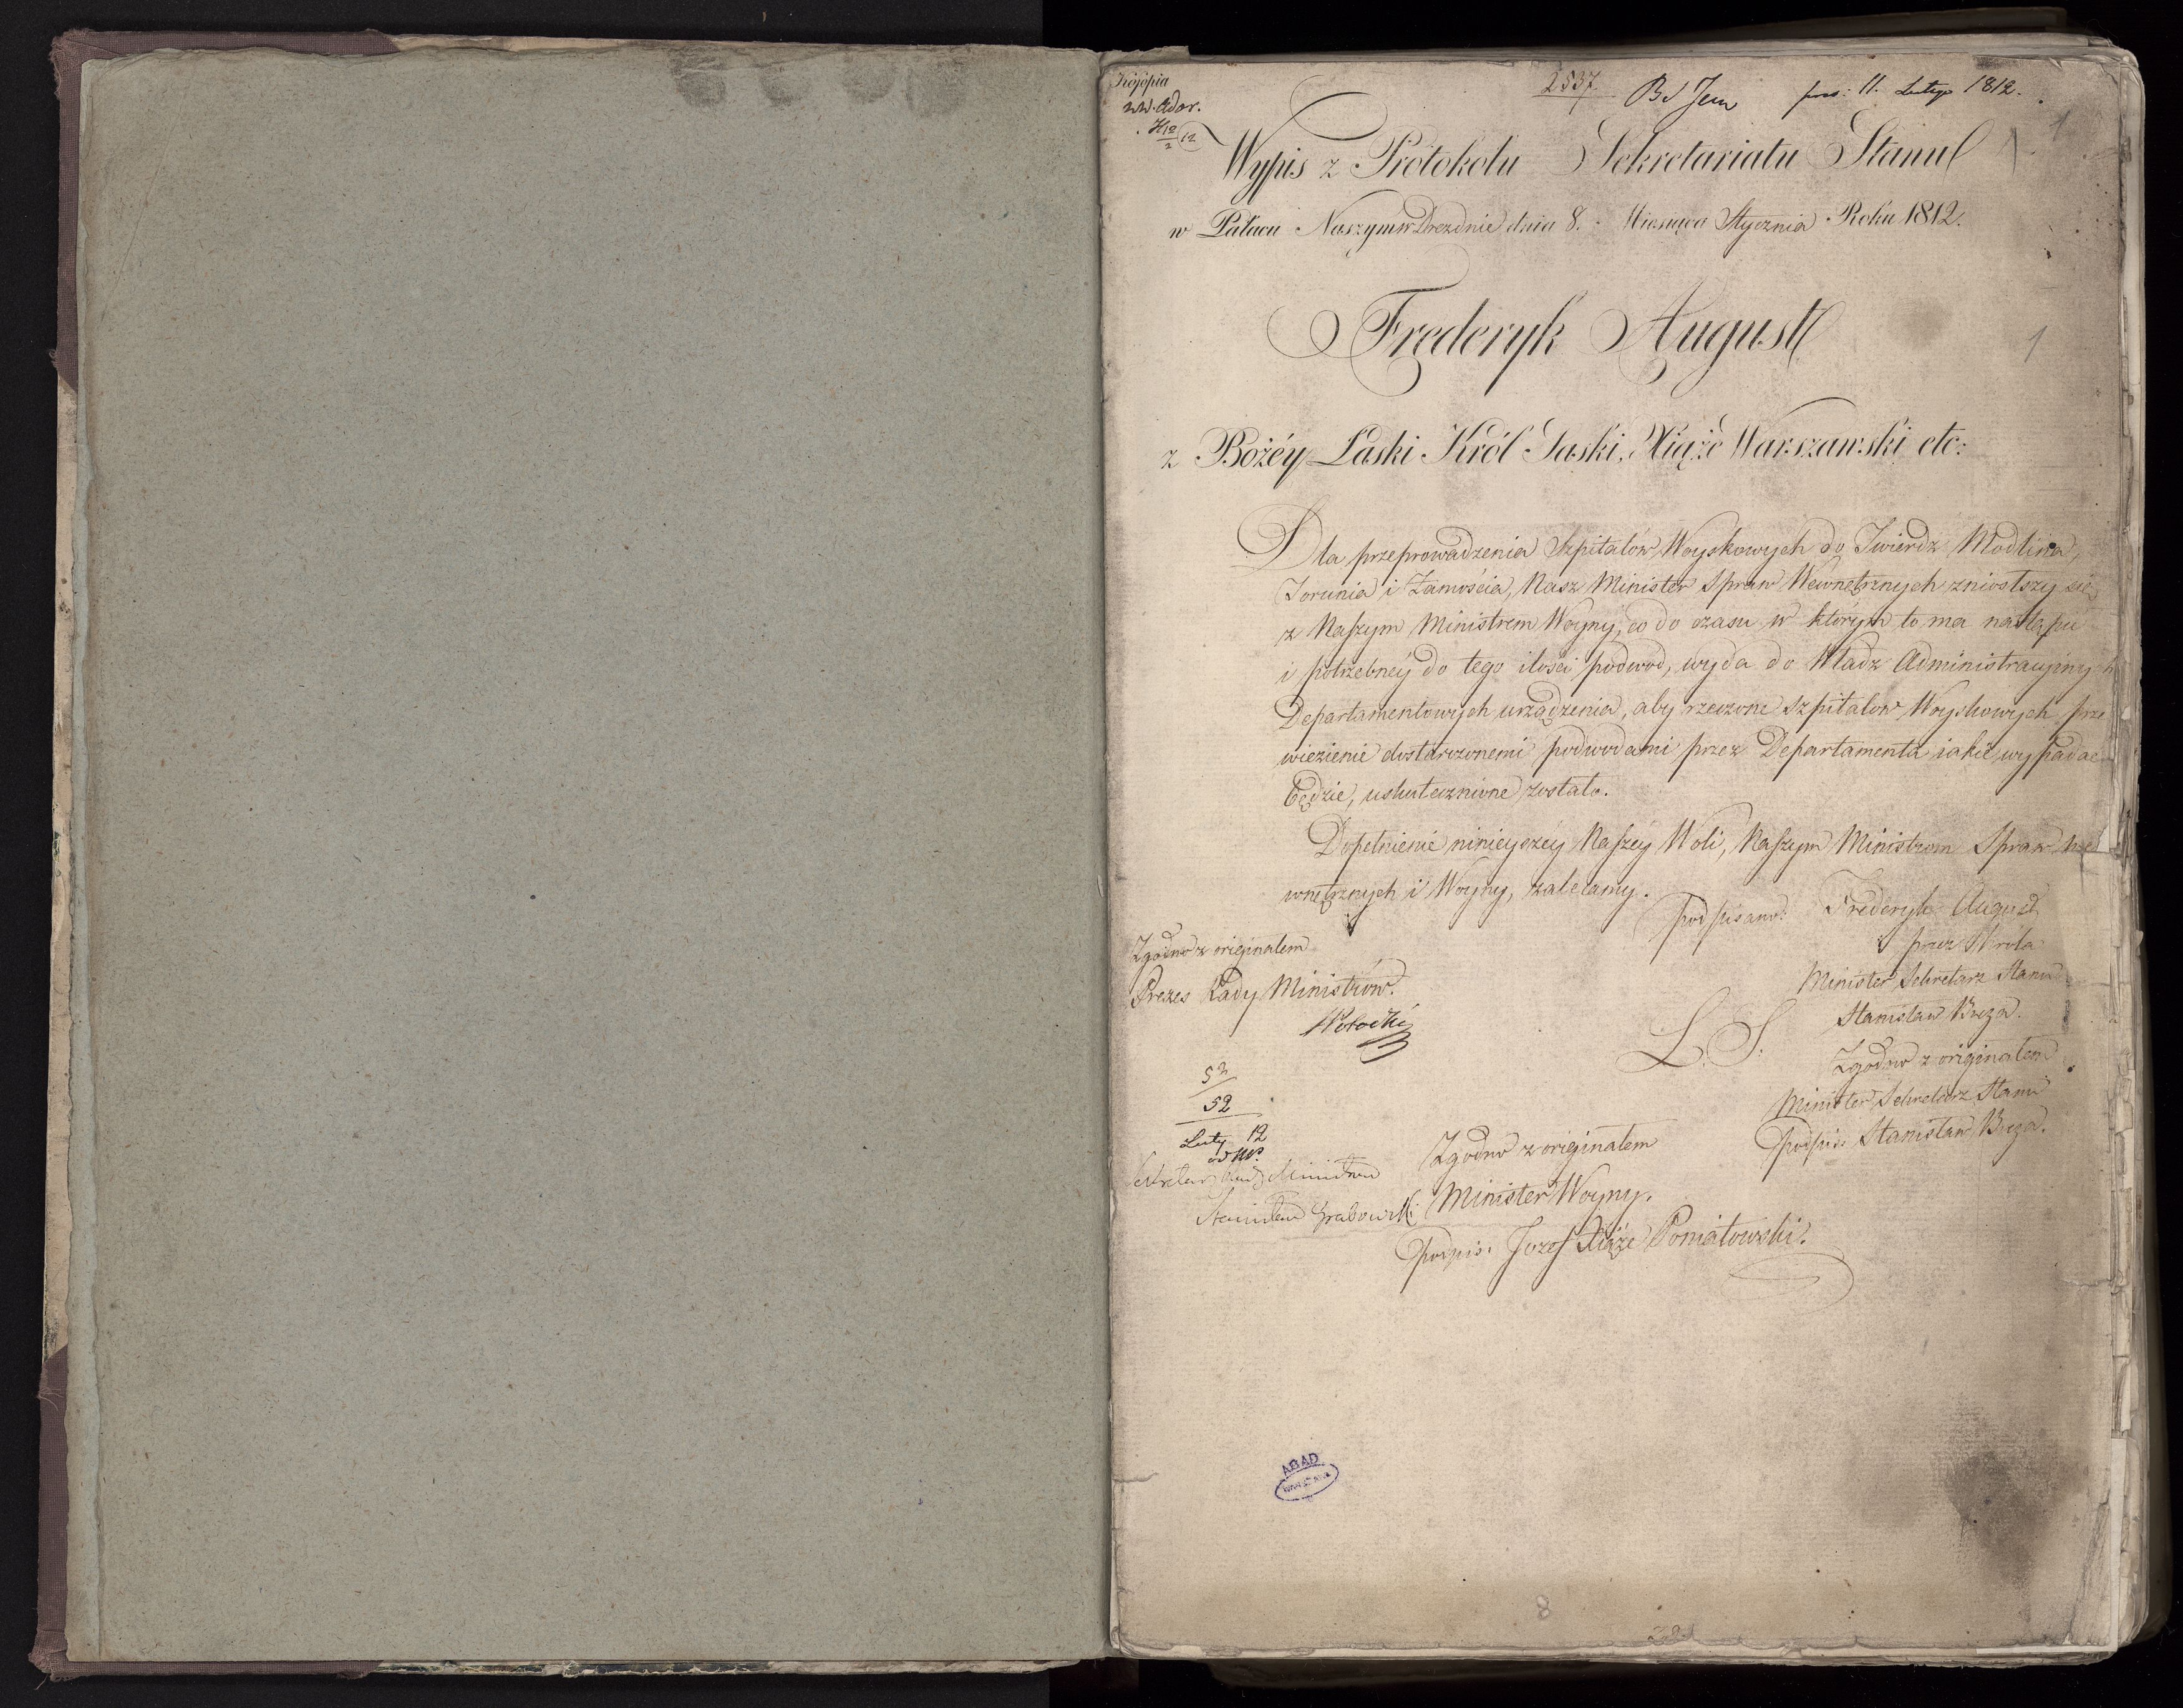 Kopia
2537
pres: 11. Lutego 1812.
1
Wypis z Protokołu Sekretariatu Stanu
w Pałacu Naszym w Dreznie dnia 8. Miesiąca Stycznia Roku 1812.
Frederyk August
1
z Bożéy Łaski Król Saski, Xiąże Warszawski etc:
Dla przeprowadzenia Szpitalów Woyskowych do Twierdz Modlina,
Torunia i Zamościa, Nasz Minister Spraw Wewnętrznych zniosłszy się
z Naszym Ministrem Woyny, co do czasu w którym to ma nastąpić
i potrzebnéy do tego ilości podwod, wyda do Władz Administracyinych
Departamentowych urządzenia, aby rzeczone Szpitalow Woyskowych prze
wiezienie dostarczonemi podwodami przez Departamenta iakie wypadac
będzie, uskutecznione zostało.
Dopełnienié ninieyszéy Naszéy Woli, Naszym Ministrom Spraw We
wnętrznych i Woyny, zalecamy.
podpisano: Frederyk August
przez Króla
Minister Sekretarz Stanu
Stanisław Breza.
L. S.
Zgodno z originałem
Minister Sekretarz Stanu
podpis: Stanisław Breza.
Zgodno z originałem
Prezes Rady Ministrów.
52
Luty 12
Sekretarz Rady Ministrów
Stanisław Grabowski
Zgodno z originałem
Minister Woyny.
podpis: Jozef Xiąże Poniatowski.
AGAD
WARSZAWA
8